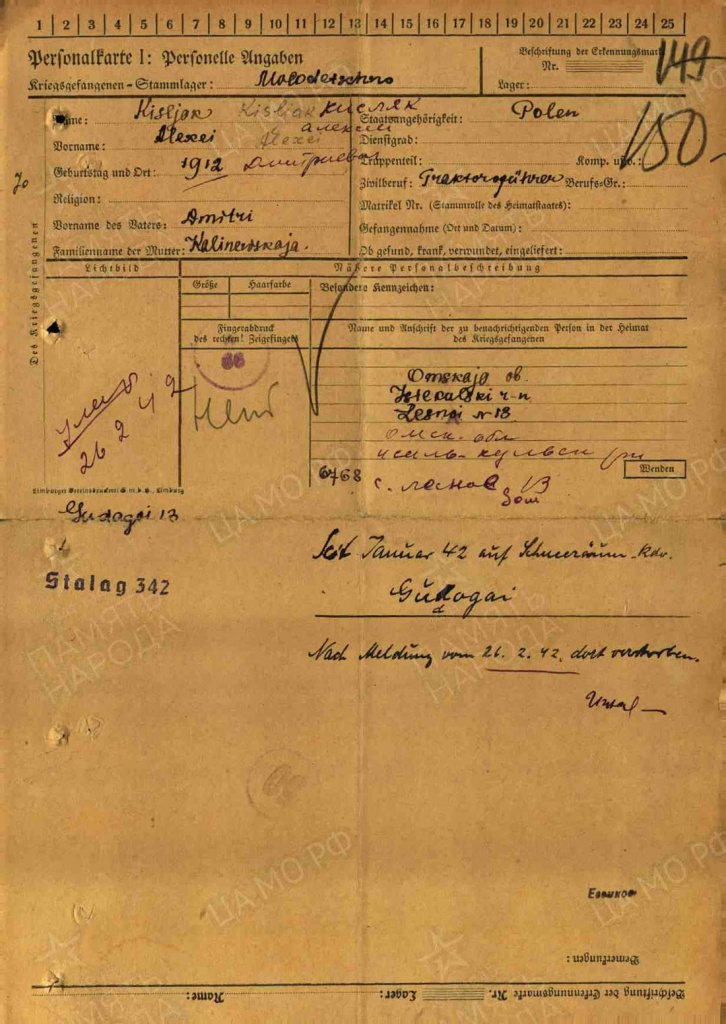 1 2 3 4 5 6 7 8 9 10 11 12 13 14 15 16 17 18 19 20 21 22 23 24 25
Personalkarte I: Personelle Angaben
Kriegsgefangenen-Stammlager: Molodetschno
Beschriftung der Erkennungsmarke
Nr. 149
Lager:
150
Name: Kisljak Kisljak Кисляк
Vorname: Alexei Alexei Алексей
Geburtstag und Ort: 1912 Дмитриевич
Religion:
Vorname des Vaters: Dmitri
Familienname der Mutter: Kalinewskaja.
Staatsangehörigkeit: Polen
Dienstgrad:
Truppenteil: Komp. usw.:
Zivilberuf: Traktorenführer Berufs-Gr.:
Matrikel Nr. (Stammrolle des Heimatstaates):
Gefangennahme (Ort und Datum):
Ob gesund, krank, verwundet, eingeliefert:
Des Kriegsgefangenen
Lichtbild
Nähere Personalbeschreibung
Größe Haarfarbe
Besondere Kennzeichen:
Fingerabdruck
des rechten! Zeigefingers
Name und Anschrift der zu benachrichtigenden Person in der Heimat
des Kriegsgefangenen
умер
26 2 42
Omskaja ob.
Lesnoi N 13
Омск. обл
6768
13
Wenden
Limburger Vereinsdruckerei G.m.b.H., Limburg
Gudogai 13
Stalag 342
Seit Januar 42 auf Schneeräum-Kdo.
Gudogai
Nach Meldung vom 26. 2. 42. dort verstorben.
Евликов
Bemerkungen:
Beschriftung der Erkennungsmarke Nr. Lager: Name:
ПАМЯТЬ НАРОДА
ЦАМО РФ